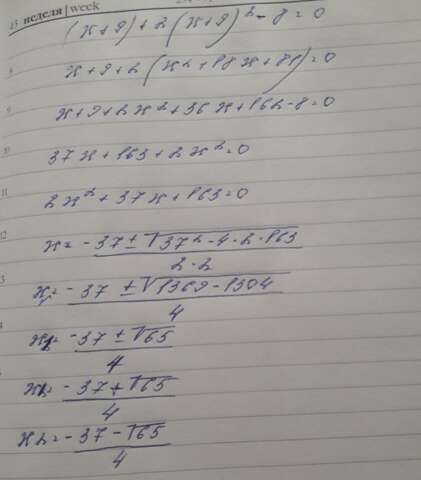 45 неделя | week
(x+9)+2(x+9)²-8=0
x+9+2(x²+18x+81)=0
x+9+2x²+36x+162-8=0
37x+163+2x²=0
2x²+37x+163=0
x=-37±√37²-4·2·163
2·2
x=-37±√1369-1304
4
x=-37±√65
4
x₁=-37+√65
4
x₂=-37-√65
4